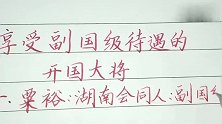 享受副国级待遇的
开国大将
一.粟裕:湖南会同人:副国